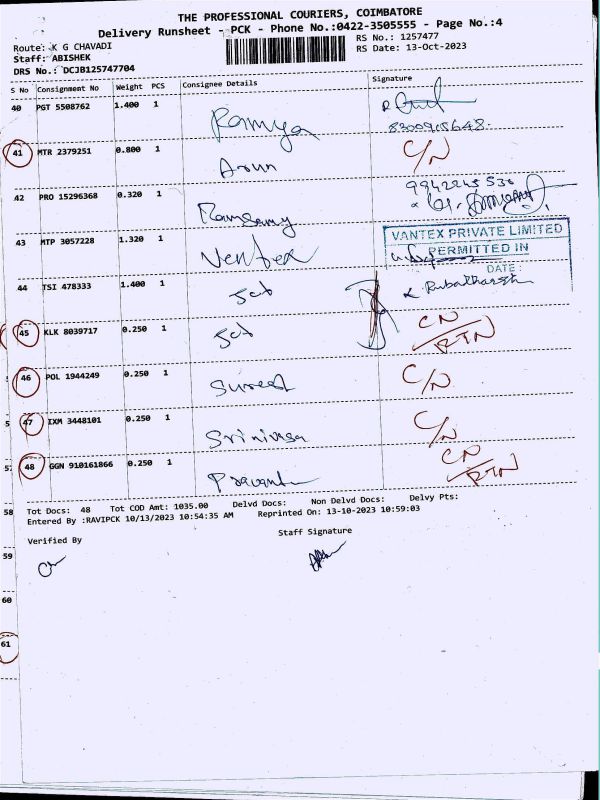 THE PROFESSIONAL COURIERS, COIMBATORE
Delivery Runsheet - PCK - Phone No.:0422-3505555 - Page No.:4
Route: K G CHAVADI
RS No.: 1257477
Staff: ABISHEK
RS Date: 13-Oct-2023
DRS No.: DCJB125747704
S No Consignment No Weight PCS Consignee Details Signature
40 PGT 5508762 1.400 1 Ramya
8300915648
41 MTR 2379251 0.800 1 Arun C/N
42 PRO 15296368 0.320 1 Ramsamy 9942245530
43 MTP 3057228 1.320 1
VANTEX PRIVATE LIMITED
PERMITTED IN
DATE:
44 TSI 478333 1.400 1
45 KLK 8039717 0.250 1 CN
RTN
46 POL 1944249 0.250 1 Suresh C/N
47 IXM 3448101 0.250 1 Srinivasa C/N
48 GGN 910161866 0.250 1 CN
RTN
Tot Docs: 48 Tot COD Amt: 1035.00 Delvd Docs: Non Delvd Docs: Delvy Pts:
Entered By :RAVIPCK 10/13/2023 10:54:35 AM Reprinted On: 13-10-2023 10:59:03
Verified By
Staff Signature
58
59
60
61